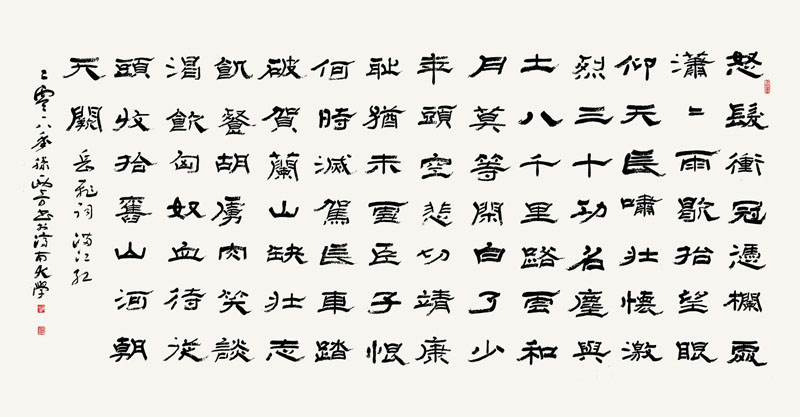 怒髮衝冠憑欄處
瀟〻雨歇抬望眼
仰天長嘯壯懷激
烈三十功名塵與
土八千里路雲和
月莫等閑白了少
年頭空悲切靖康
恥猶未雪臣子恨
何時滅駕長車踏
破賀蘭山缺壯志
飢餐胡虜肉笑談
渴飲匈奴血待從
頭收拾舊山河朝
天闕 岳飛詞 滿江紅
八年徐書於濟南大學